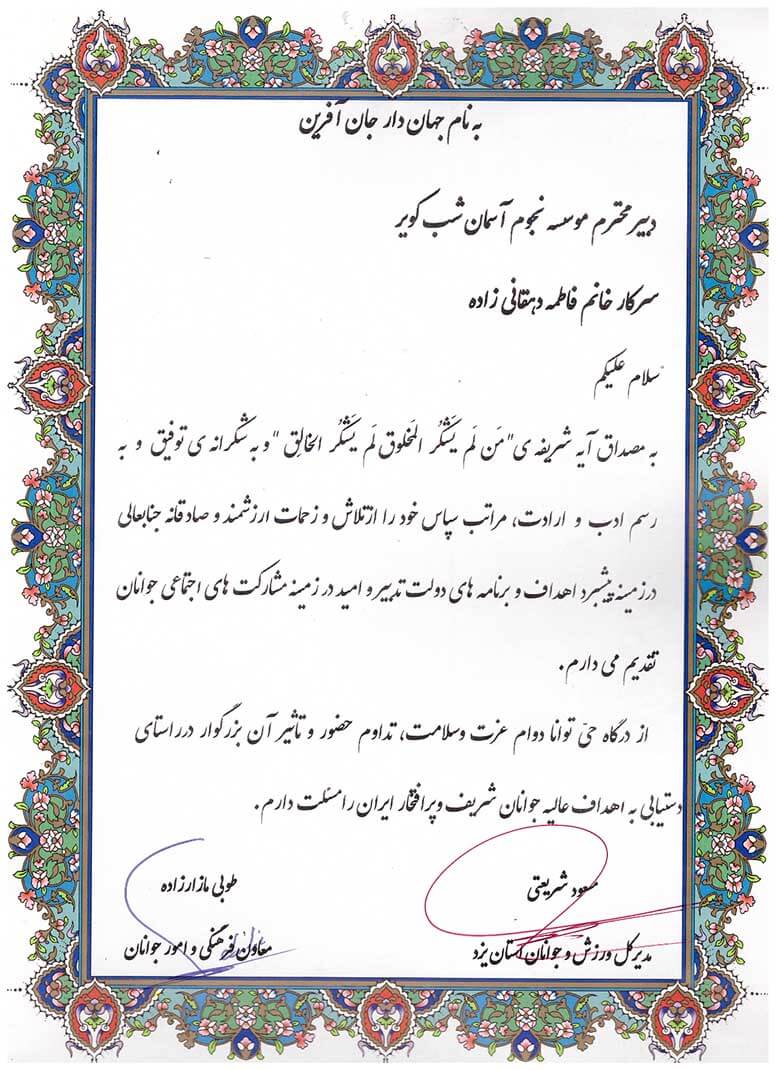 به نام جهان دار جان آفرین
دبیر محترم موسسه نجوم آسمان شب کویر
سرکار خانم فاطمه دهقانی زاده
سلام علیکم
به مصداق آیه شریفه ی "مَن لَم یَشکُر المَخلوق لَم یَشکُر الخالِق " و به شکرانه ی توفیق و به
رسم ادب و ارادت، مراتب سپاس خود را از تلاش و زحمات ارزشمند و صادقانه جنابعالی
در زمینه پیشبرد اهداف و برنامه های دولت تدبیر و امید در زمینه مشارکت های اجتماعی جوانان
تقدیم می دارم.
از درگاه حیّ توانا دوام عزت وسلامت، تداوم حضور و تاثیر آن بزرگوار درراستای
دستیابی به اهداف عالیه جوانان شریف وپرافتخار ایران را مسئلت دارم.
مسعود شریعتی
مدیرکل ورزش و جوانان استان یزد
طوبی مازارزاده
معاون فرهنگی و امور جوانان